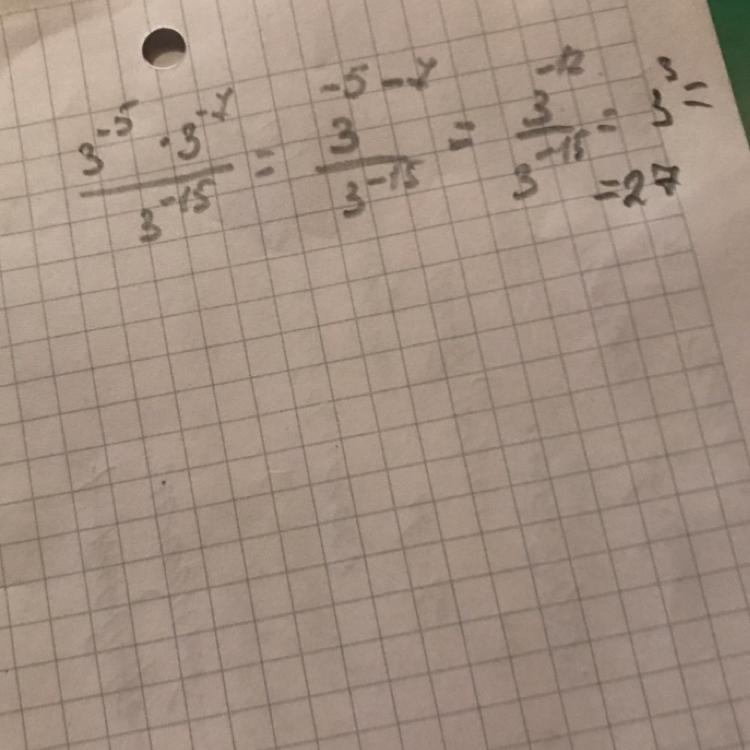 3^-5 · 3^-7 / 3^-15 = 3^-5-7 / 3^-15 = 3^-12 / 3^-15 = 3^3 =
= 27